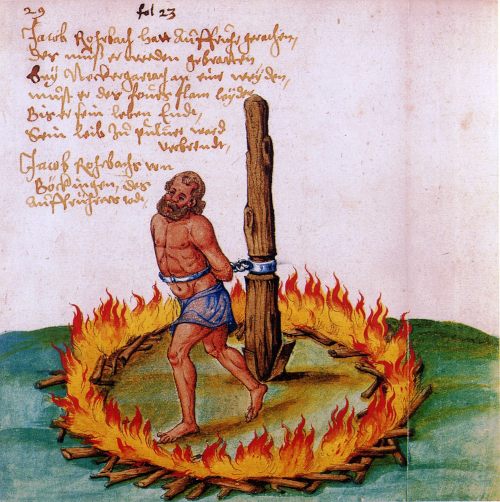 29 fol 23
Jacob Rohrbach hatt Auffruhr gerathen,
Der muſt er werden gebratten,
Bey Neckergartach an eine weyden,
muſt er des feuers flam leyden
Bis er sein leben Endt,
Sein leib Zu puluer ward
verbrendt,
Jacob Rohrbachs von
Böckingen, des
Auffruhrers